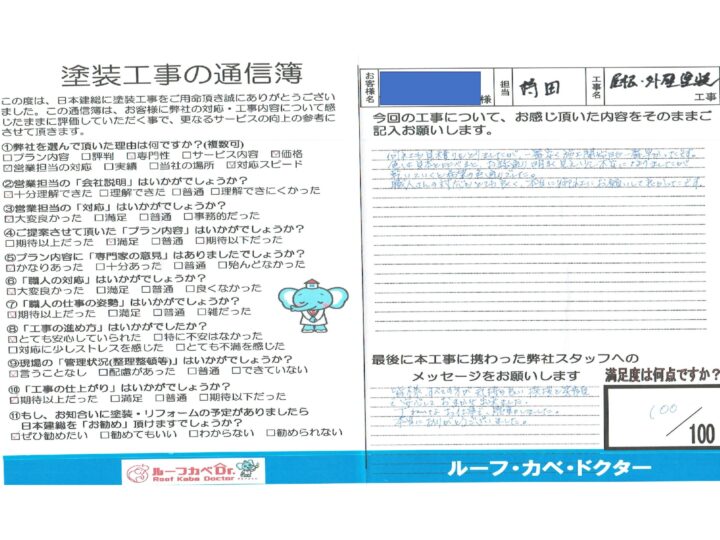 塗装工事の通信簿
この度は、日本建総に塗装工事をご用命頂き誠にありがとうござい
ました。この通信簿は、お客様に弊社の対応・工事内容について感
じたままに評価していただく事で、更なるサービスの向上の参考に
させて頂きます。
①弊社を選んで頂いた理由は何ですか?(複数可)
□プラン内容 □評判 □専門性 □サービス内容 ☑価格
☑営業担当の対応 □実績 □当社の場所 ☑対応スピード
②営業担当の「会社説明」はいかがでしょうか?
☑十分理解できた □理解できた □普通 □理解できにくかった
③営業担当の「対応」はいかがでしょうか?
☑大変良かった □満足 □普通 □事務的だった
④ご提案させて頂いた「プラン内容」はいかがでしょうか?
□期待以上だった ☑満足 □普通 □期待以下だった
⑤プラン内容に「専門家の意見」はありましたでしょうか?
☑かなりあった □十分あった □普通 □殆んどなかった
⑥「職人の対応」はいかがでしょうか?
☑大変良かった □満足 □普通 □良くなかった
⑦「職人の仕事の姿勢」はいかがでしょうか?
☑期待以上だった □満足 □普通 □雑だった
⑧「工事の進め方」はいかがでしたか?
☑とても安心していられた □特に不安はなかった
□対応に少しストレスを感じた □とても不満を感じた
⑨現場の「管理状況(整理整頓等)」はいかがでしょうか?
□言うことなし □配慮があった □普通 □できていない
⑩「工事の仕上がり」はいかがでしょうか?
☑期待以上だった □満足 □普通 □期待以下だった
⑪もし、お知合いに塗装・リフォームの予定がありましたら
日本建総を「お勧め」頂けますでしょうか?
□ぜひ勧めたい □勧めてもいい □わからない □勧められない
ルーフカベDr.
Roof Kabe Doctor
お客様名 様 担当 工事名 屋根・外壁塗装 工事
今回の工事について、お感じ頂いた内容をそのままご
記入お願いします。
最後に本工事に携わった弊社スタッフへの
メッセージをお願いします
満足度は何点ですか?
100
/100
本当にありがとうございました。
ルーフ・カベ・ドクター